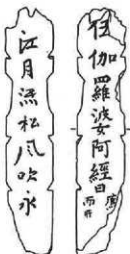 伽羅波女阿經田
江月流松風吹永